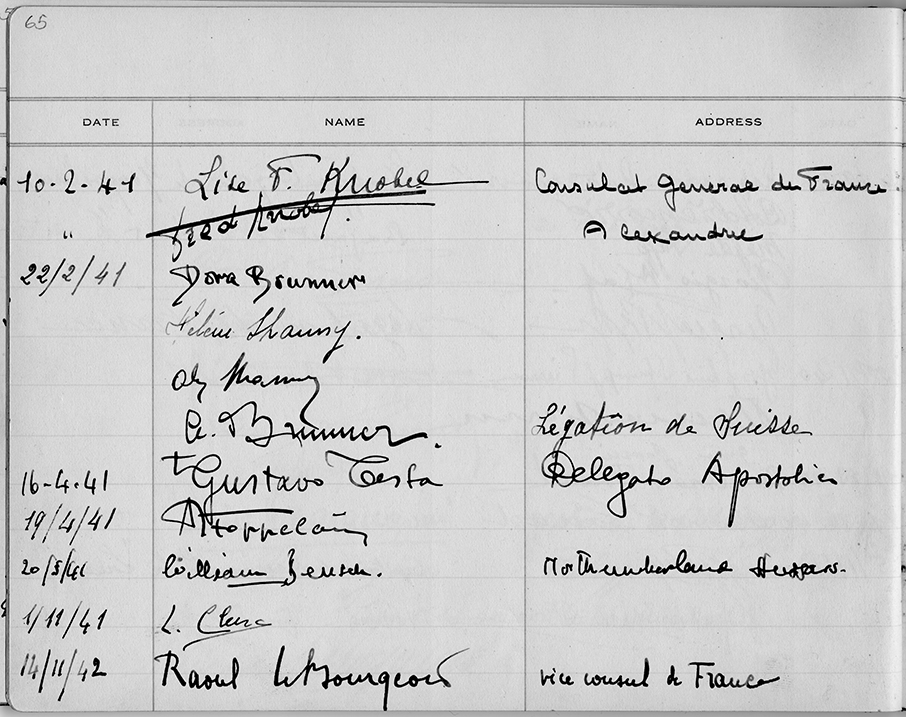 65
DATE NAME ADDRESS
10-2-41 Lise F. Knobel Consulat General de France
" Fred Knobel. Alexandrie
22/2/41 Dora Brunner
Hélène
A. Brunner. Légation de Suisse
16-4-41 + Gustavo Testa Delegato Apostolico
19/4/41
20/5/41 William Northumberland Hussars.
1/11/41 L.
14/11/42 Raoul LeBourgeois vice consul de France